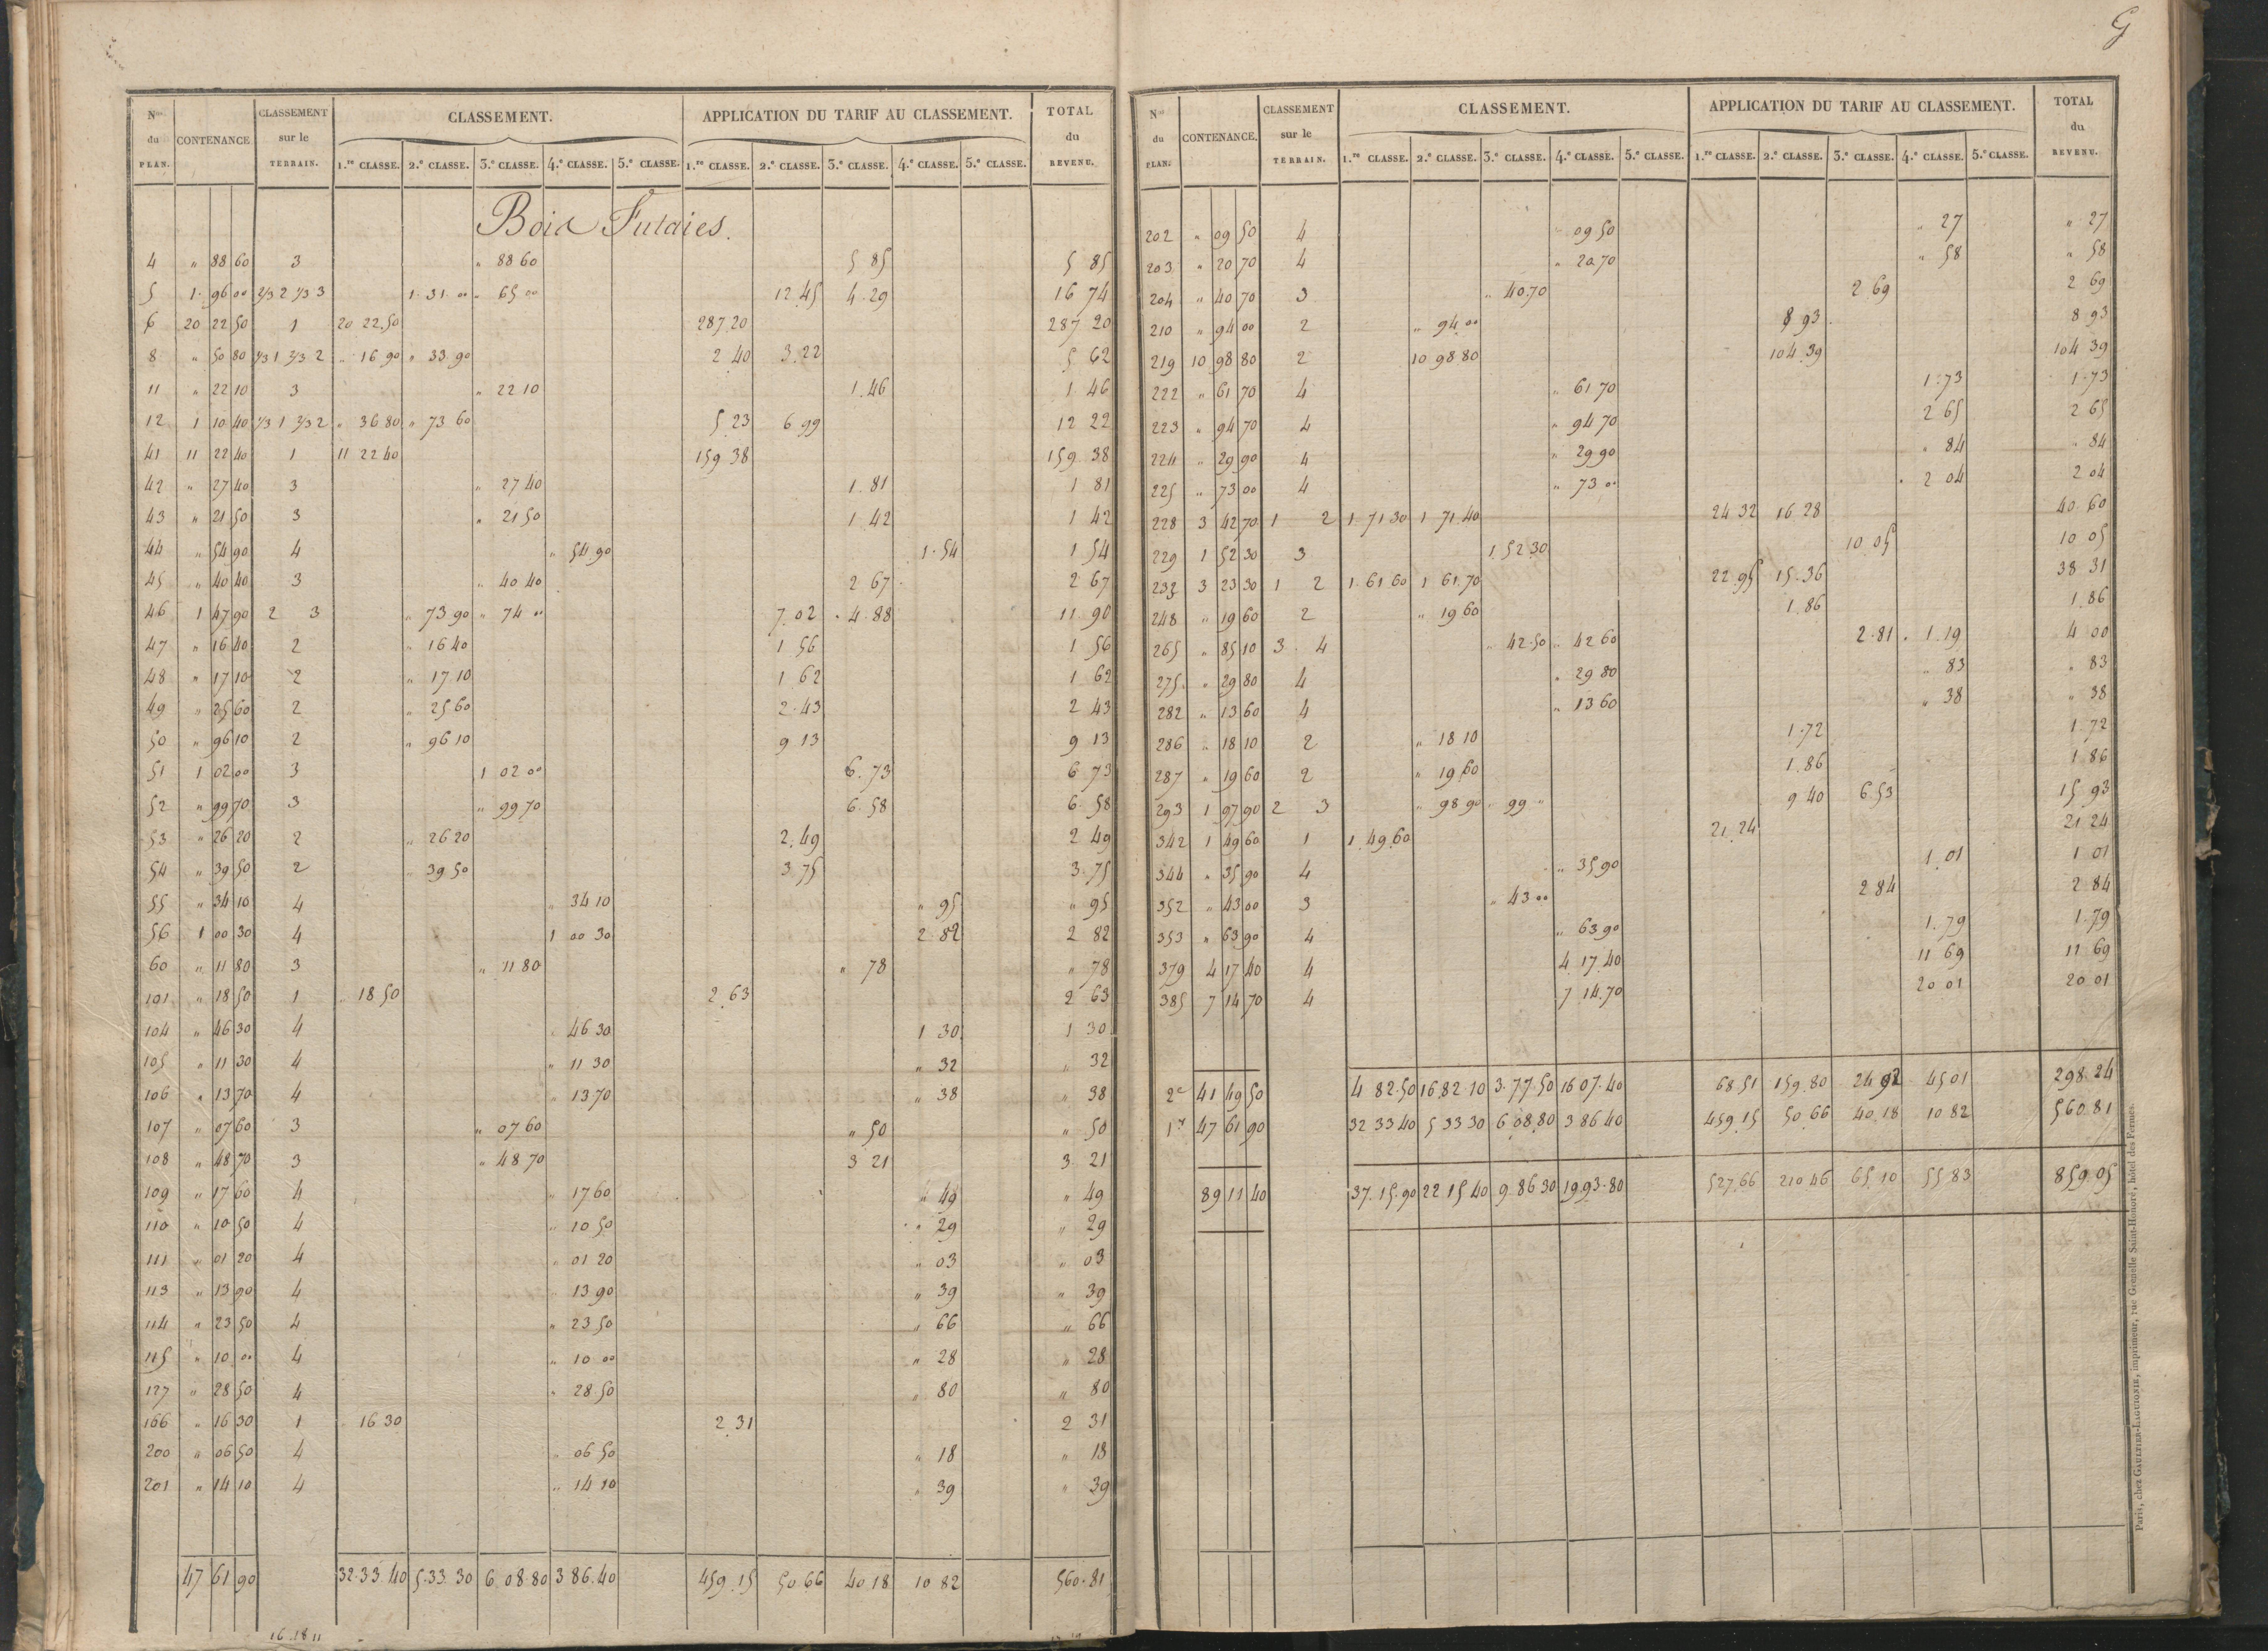 G
N.os du PLAN. CONTENANCE CLASSEMENT sur le TERRAIN. CLASSEMENT. APPLICATION DU TARIF AU CLASSEMENT. TOTAL du REVENU.
1.re CLASSE. 2.e CLASSE. 3.e CLASSE. 4.e CLASSE. 5.e CLASSE. 1.re CLASSE. 2.e CLASSE. 3.e CLASSE. 4.e CLASSE. 5.e CLASSE.
Bois Futaies.
4 " 88 60 3 " 88 60 5 85 5 85
5 1 96 00 2/3 2 1/3 3 1 31 00 " 65 00 12 45 4 29 16 74
6 20 22 50 1 20 22 50 287 20 287 20
8 " 50 80 1/3 1 2/3 2 " 16 90 " 33 90 2 40 3 22 5 62
11 " 22 10 3 " 22 10 1 46 1 46
12 1 10 40 1/3 1 2/3 2 " 36 80 " 73 60 5 23 6 99 12 22
41 11 22 40 1 11 22 40 159 38 159 38
42 " 27 40 3 " 27 40 1 81 1 81
43 " 21 50 3 " 21 50 1 42 1 42
44 " 54 90 4 " 54 90 1 54 1 54
45 " 40 40 3 " 40 40 2 67 2 67
46 1 47 90 2 3 " 73 90 " 74 00 7 02 4 88 11 90
47 " 16 40 2 " 16 40 1 56 1 56
48 " 17 10 2 " 17 10 1 62 1 62
49 " 25 60 2 " 25 60 2 43 2 43
50 " 96 10 2 " 96 10 9 13 9 13
51 1 02 00 3 1 02 00 6 73 6 73
52 " 99 70 3 " 99 70 6 58 6 58
53 " 26 20 2 " 26 20 2 49 2 49
54 " 39 50 2 " 39 50 3 75 3 75
55 " 34 10 4 " 34 10 " 95 " 95
56 1 00 30 4 1 00 30 2 82 2 82
60 " 11 80 3 " 11 80 " 78 " 78
101 " 18 50 1 " 18 50 2 63 2 63
104 " 46 30 4 " 46 30 1 30 1 30
105 " 11 30 4 " 11 30 " 32 " 32
106 " 13 70 4 " 13 70 " 38 " 38
107 " 07 60 3 " 07 60 " 50 " 50
108 " 48 70 3 " 48 70 3 21 3 21
109 " 17 60 4 " 17 60 " 49 " 49
110 " 10 50 4 " 10 50 " 29 " 29
111 " 01 20 4 " 01 20 " 03 " 03
113 " 13 90 4 " 13 90 " 39 " 39
114 " 23 50 4 " 23 50 " 66 " 66
115 " 10 00 4 " 10 00 " 28 " 28
127 " 28 50 4 " 28 50 " 80 " 80
166 " 16 30 1 " 16 30 2 31 2 31
200 " 06 50 4 " 06 50 " 18 " 18
201 " 14 10 4 " 14 10 " 39 " 39
47 61 90 32 33 40 5 33 30 6 08 80 3 86 40 459 15 50 66 40 18 10 82 560 81
N.os du PLAN. CONTENANCE. CLASSEMENT sur le TERRAIN. CLASSEMENT. APPLICATION DU TARIF AU CLASSEMENT. TOTAL du REVENU.
1.re CLASSE. 2.e CLASSE. 3.e CLASSE. 4.e CLASSE. 5.e CLASSE. 1.re CLASSE. 2.e CLASSE. 3.e CLASSE. 4.e CLASSE. 5.e CLASSE.
202 " 09 50 4 " 09 50 " 27 " 27
203 " 20 70 4 " 20 70 " 58 " 58
204 " 40 70 3 " 40 70 2 69 2 69
210 " 94 00 2 " 94 00 8 93 8 93
219 10 98 80 2 10 98 80 104 39 104 39
222 " 61 70 4 " 61 70 1 73 1 73
223 " 94 70 4 " 94 70 2 65 2 65
224 " 29 90 4 " 29 90 " 84 " 84
225 " 73 00 4 " 73 00 2 04 2 04
228 3 42 70 1 2 1 71 30 1 71 40 24 32 16 28 40 60
229 1 52 30 3 1 52 30 10 05 10 05
232 3 23 30 1 2 1 61 60 1 61 70 22 95 15 36 38 31
248 " 19 60 2 " 19 60 1 86 1 86
265 " 85 10 3 4 " 42 50 " 42 60 2 81 1 19 4 00
275 " 29 80 4 " 29 80 " 83 " 83
282 " 13 60 4 " 13 60 " 38 " 38
286 " 18 10 2 " 18 10 1 72 1 72
287 " 19 60 2 " 19 60 1 86 1 86
293 1 97 90 2 3 " 98 90 " 99 " 9 40 6 53 15 93
342 1 49 60 1 1 49 60 21 24 21 24
344 " 35 90 4 " 35 90 1 01 1 01
352 " 43 00 3 " 43 00 2 84 2 84
353 " 63 90 4 " 63 90 1 79 1 79
379 4 17 40 4 4 17 40 11 69 11 69
385 7 14 70 4 7 14 70 20 01 20 01
2e 41 49 50 4 82 50 16 82 10 3 77 50 16 07 40 68 51 159 80 24 92 45 01 298 24
1r 47 61 90 32 33 40 5 33 30 6 08 80 3 86 40 459 15 50 66 40 18 10 82 560 81
89 11 40 37 15 90 22 15 40 9 86 30 19 93 80 527 66 210 46 65 10 55 83 859 05
Paris, chez GAULTIER-LAGUIONIE, imprimeur, rue Grenelle Saint-Honoré, hôtel des Fermes.